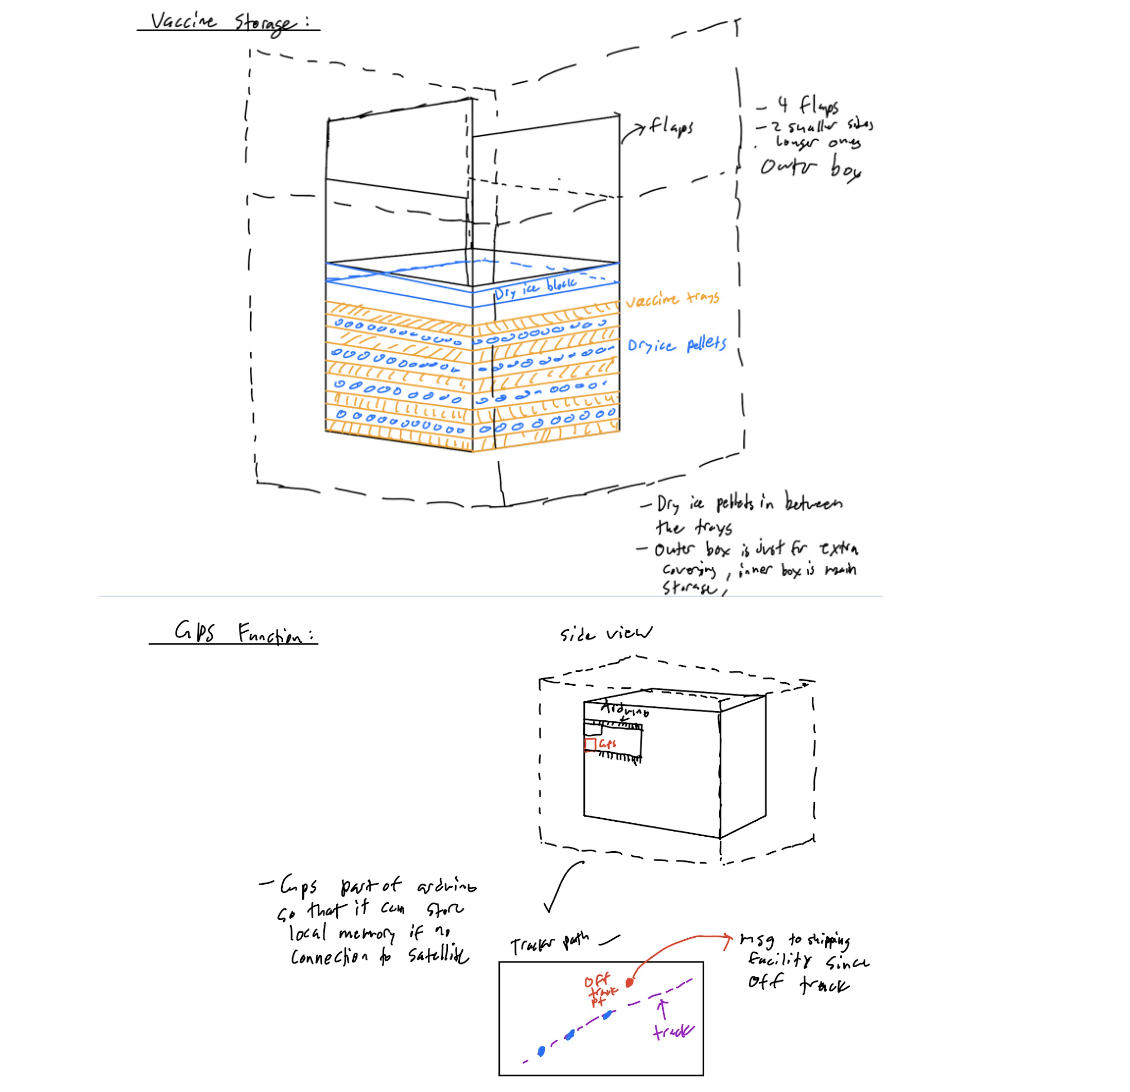 Vaccine Storage:
flaps
- 4 flaps
- 2 smaller sides
longer ones
Outer box
Dry ice block
vaccine trays
Dry ice pellets
- Dry ice pellets in between
the trays
- Outer box is just for extra
covering, inner box is main
storage,
GPS Function:
Side view
Arduino
GPS
- GPS part of arduino
so that it can store
local memory if no
connection to satellite
Tracker path
off
track
pt
track
msg to shipping
facility since
off track